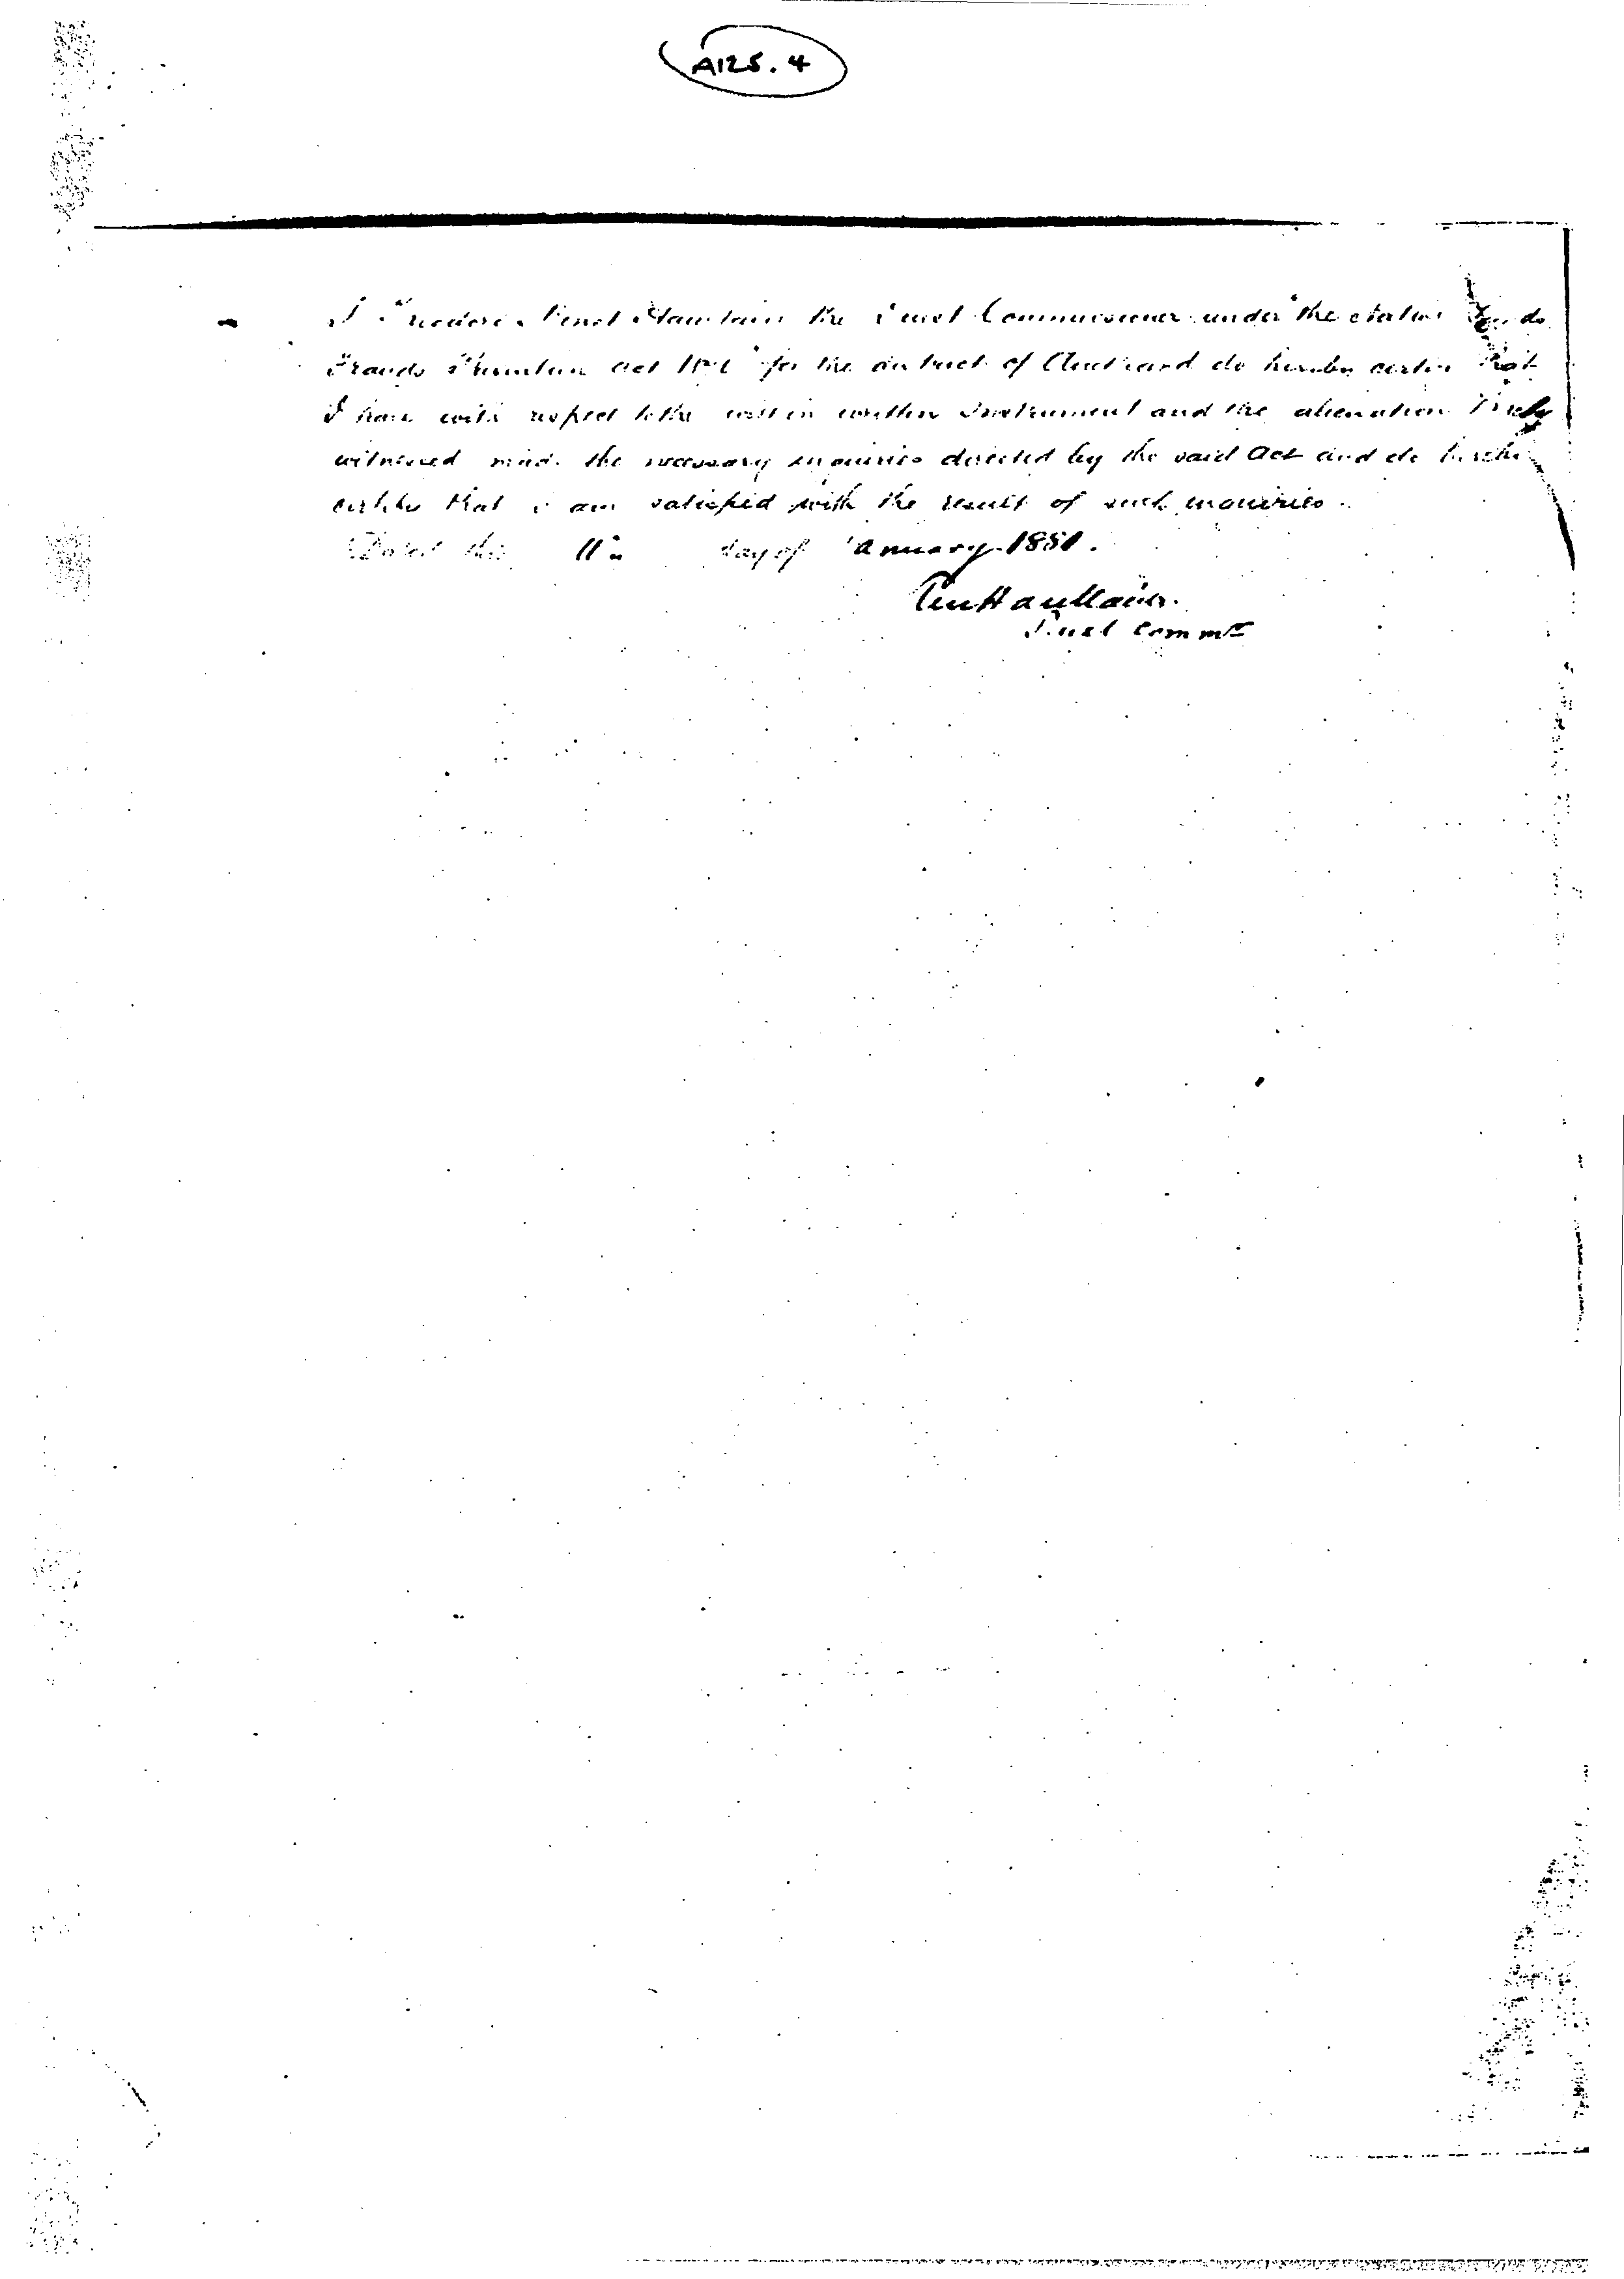 A125.4
I Theodore Minet Haultain the Trust Commissioner under the Native Lands
Frauds Prevention Act 1881 for the district of Auckland do hereby certify that
I have with respect to the within written Instrument and the alienation thereby
witnessed made the necessary inquiries directed by the said Act and do further
certify that I am satisfied with the result of such inquiries.
Dated this 11th day of January 1881.
TM Haultain.
Trust Commr